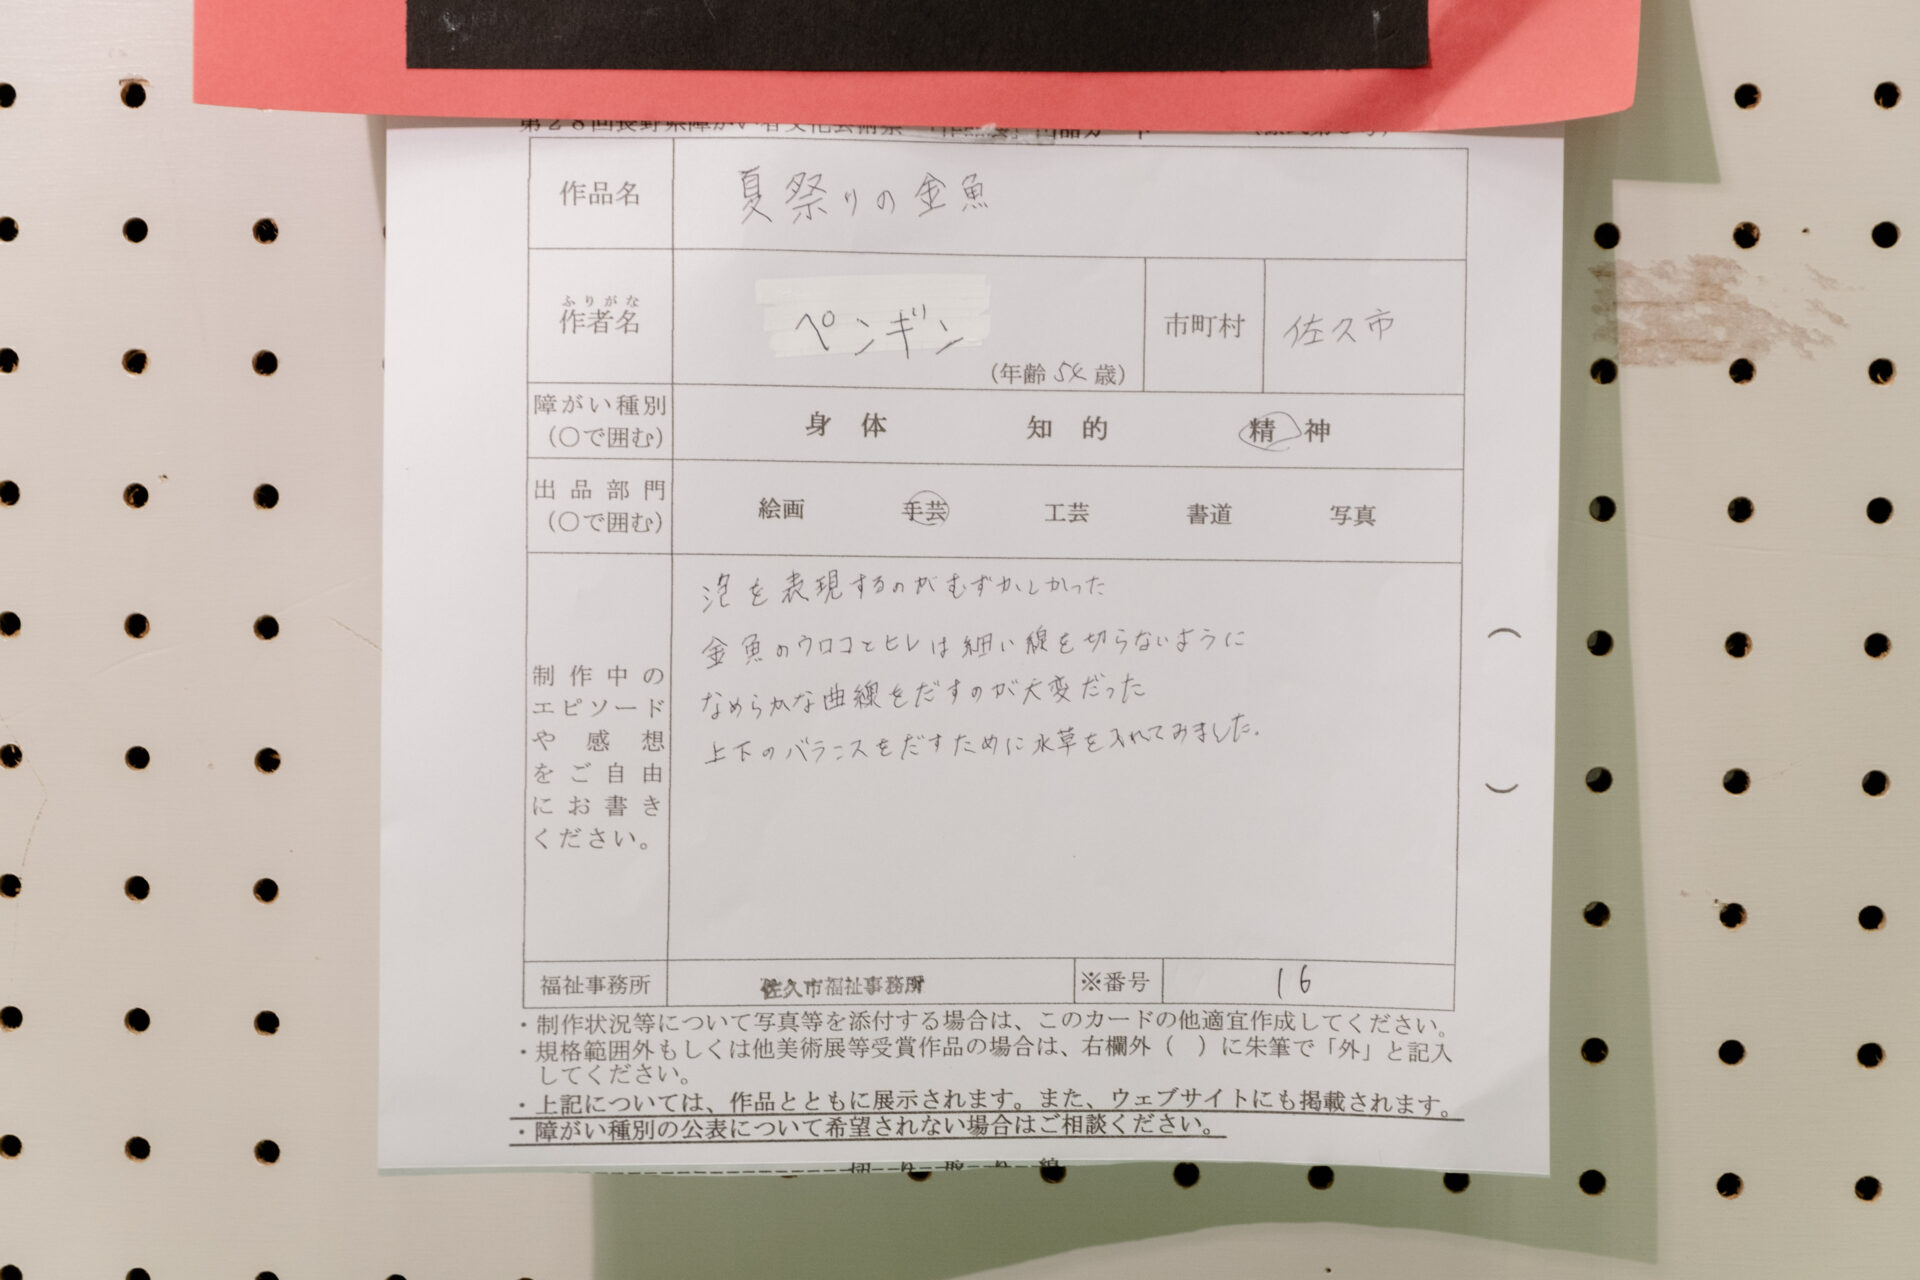 第28回長野県障がい者文化芸術祭「作品展」出品カード
作品名 夏祭りの金魚
ふりがな
作者名 ペンギン
(年齢54歳)
市町村 佐久市
障がい種別
(○で囲む)
身体 知的 精神
出品部門
(○で囲む)
絵画 手芸 工芸 書道 写真
制作中の
エピソード
や感想
をご自由
にお書き
ください。
泡を表現するのがむずかしかった
金魚のウロコとヒレは細い線を切らないように
なめらかな曲線をだすのが大変だった
上下のバランスをだすために水草を入れてみました.
( )
福祉事務所 佐久市福祉事務所 ※番号 16
・制作状況等について写真等を添付する場合は、このカードの他適宜作成してください。
・規格範囲外もしくは他美術展等受賞作品の場合は、右欄外( )に朱筆で「外」と記入
してください。
・上記については、作品とともに展示されます。また、ウェブサイトにも掲載されます。
・障がい種別の公表について希望されない場合はご相談ください。
切り取り線